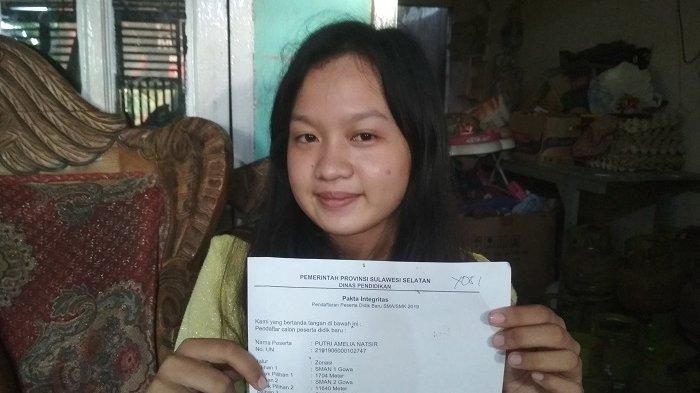 PEMERINTAH PROVINSI SULAWESI SELATAN
DINAS PENDIDIKAN
Pakta Integritas
Pendaftaran Peserta Didik Baru SMA/SMK 2019
Kami yang bertanda tangan di bawah ini :
Pendaftar calon peserta didik baru :
Nama Peserta : PUTRI AMELIA NATSIR
No. UN : 2191906000102747
alur : Zonasi
ilihan 1 : SMAN 1 Gowa
ak Pilihan 1 : 1704 Meter
an 2 : SMAN 2 Gowa
k Pilihan 2 : 11640 Meter